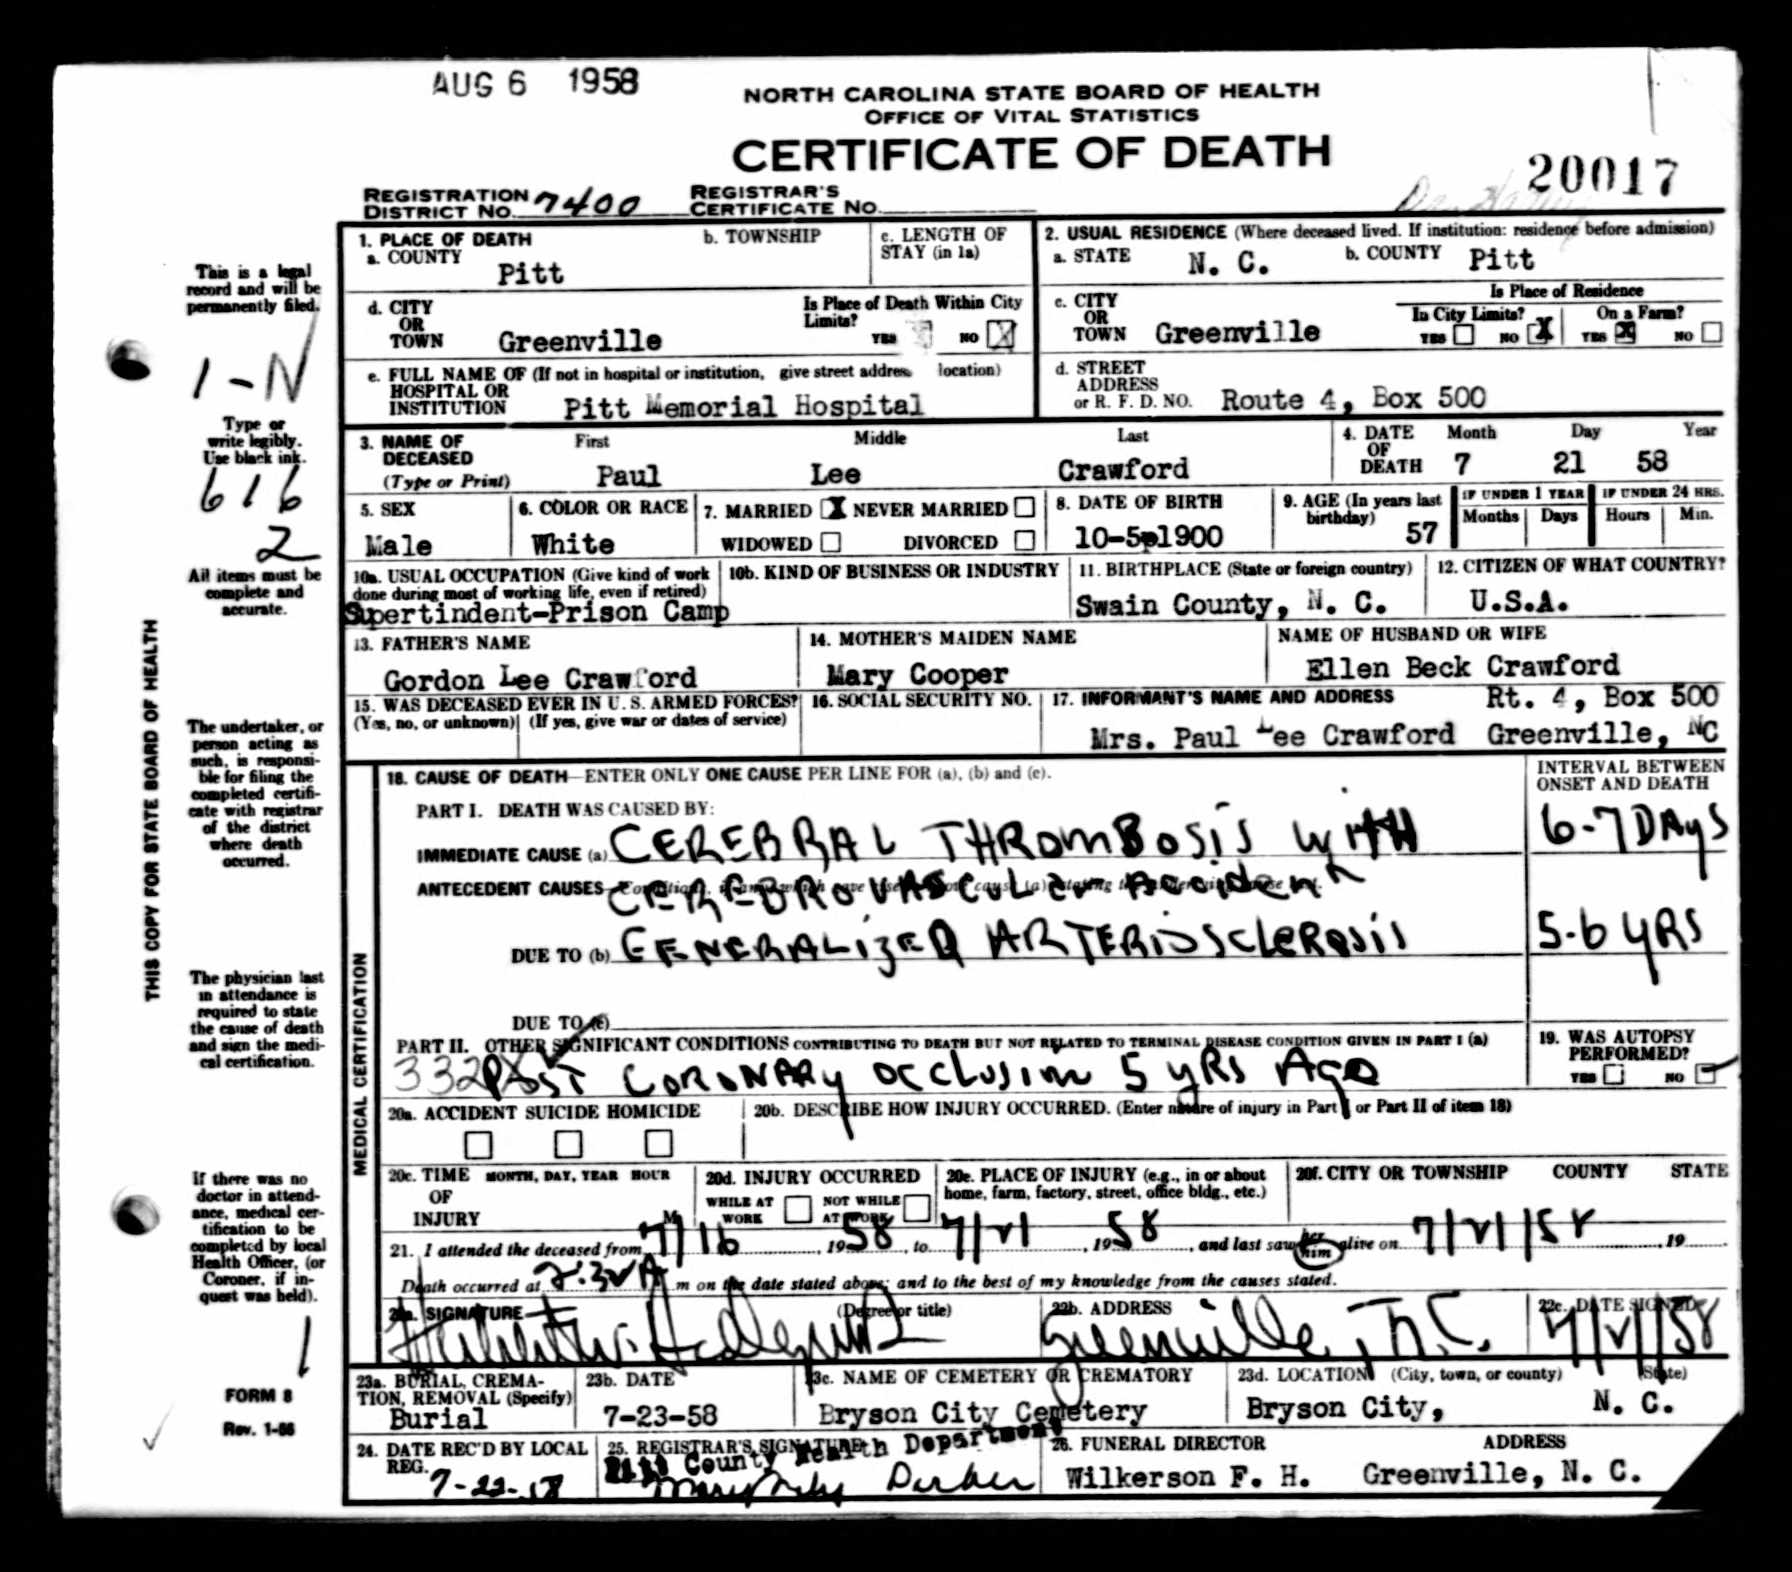 AUG 6 1958
NORTH CAROLINA STATE BOARD OF HEALTH
OFFICE OF VITAL STATISTICS
CERTIFICATE OF DEATH
20017
REGISTRATION DISTRICT No. 7400 REGISTRAR'S CERTIFICATE No.
This is a legal
record and will be
permanently filed.
1-N
Type or
write legibly.
Use black ink.
616
2
All items must be
complete and
accurate.
THIS COPY FOR STATE BOARD OF HEALTH
The undertaker, or
person acting as
such, is responsi-
ble for filing the
completed certifi-
cate with registrar
of the district
where death
occurred.
The physician last
in attendance is
required to state
the cause of death
and sign the medi-
cal certification.
If there was no
doctor in attend-
ance, medical cer-
tification to be
completed by local
Health Officer, (or
Coroner, if in-
quest was held).
1
FORM 8
Rev. 1-56
1. PLACE OF DEATH
a. COUNTY Pitt
b. TOWNSHIP
c. LENGTH OF STAY (in 1a)
2. USUAL RESIDENCE (Where deceased lived. If institution: residence before admission)
a. STATE N. C. b. COUNTY Pitt
d. CITY OR TOWN Greenville
Is Place of Death Within City Limits? YES NO X
c. CITY OR TOWN Greenville
Is Place of Residence
In City Limits? YES NO X On a Farm? YES X NO
e. FULL NAME OF (If not in hospital or institution, give street address location)
HOSPITAL OR INSTITUTION Pitt Memorial Hospital
d. STREET ADDRESS or R. F. D. NO. Route 4, Box 500
3. NAME OF DECEASED (Type or Print) First Middle Last
Paul Lee Crawford
4. DATE OF DEATH Month Day Year
7 21 58
5. SEX Male
6. COLOR OR RACE White
7. MARRIED X NEVER MARRIED
WIDOWED DIVORCED
8. DATE OF BIRTH 10-5-1900
9. AGE (In years last birthday) 57
IF UNDER 1 YEAR Months Days
IF UNDER 24 HRS. Hours Min.
10a. USUAL OCCUPATION (Give kind of work done during most of working life, even if retired)
Supertindent-Prison Camp
10b. KIND OF BUSINESS OR INDUSTRY
11. BIRTHPLACE (State or foreign country)
Swain County, N. C.
12. CITIZEN OF WHAT COUNTRY?
U.S.A.
13. FATHER'S NAME
Gordon Lee Crawford
14. MOTHER'S MAIDEN NAME
Mary Cooper
NAME OF HUSBAND OR WIFE
Ellen Beck Crawford
15. WAS DECEASED EVER IN U. S. ARMED FORCES?
(Yes, no, or unknown) (If yes, give war or dates of service)
16. SOCIAL SECURITY NO.
17. INFORMANT'S NAME AND ADDRESS Rt. 4, Box 500
Mrs. Paul Lee Crawford Greenville, NC
MEDICAL CERTIFICATION
18. CAUSE OF DEATH—ENTER ONLY ONE CAUSE PER LINE FOR (a), (b) and (c).
INTERVAL BETWEEN ONSET AND DEATH
PART I. DEATH WAS CAUSED BY:
IMMEDIATE CAUSE (a) CEREBRAL THROMBOSIS WITH 6-7 DAYS
ANTECEDENT CAUSES CEREBROVASCULER ACCIDENT
DUE TO (b) GENERALIZED ARTERIOSCLEROSIS 5-6 YRS
DUE TO (c)
PART II. OTHER SIGNIFICANT CONDITIONS CONTRIBUTING TO DEATH BUT NOT RELATED TO TERMINAL DISEASE CONDITION GIVEN IN PART I (a)
332X PAST CORONARY OCCLUSION 5 YRS AGO
19. WAS AUTOPSY PERFORMED? YES NO
20a. ACCIDENT SUICIDE HOMICIDE
20b. DESCRIBE HOW INJURY OCCURRED. (Enter nature of injury in Part I or Part II of item 18)
20c. TIME OF INJURY MONTH, DAY, YEAR HOUR M
20d. INJURY OCCURRED
WHILE AT WORK NOT WHILE AT WORK
20e. PLACE OF INJURY (e.g., in or about home, farm, factory, street, office bldg., etc.)
20f. CITY OR TOWNSHIP COUNTY STATE
21. I attended the deceased from 7/16, 1958, to 7/21, 1958, and last saw her him alive on 7/21/58, 19
Death occurred at m on the date stated above; and to the best of my knowledge from the causes stated.
22a. SIGNATURE (Degree or title)
22b. ADDRESS
Greenville, N.C.
22c. DATE SIGNED
7/21/58
23a. BURIAL, CREMATION, REMOVAL (Specify)
Burial
23b. DATE
7-23-58
23c. NAME OF CEMETERY OR CREMATORY
Bryson City Cemetery
23d. LOCATION (City, town, or county) (State)
Bryson City, N. C.
24. DATE REC'D BY LOCAL REG.
7-22-58
25. REGISTRAR'S SIGNATURE
Pitt County Health Department
26. FUNERAL DIRECTOR ADDRESS
Wilkerson F. H. Greenville, N. C.